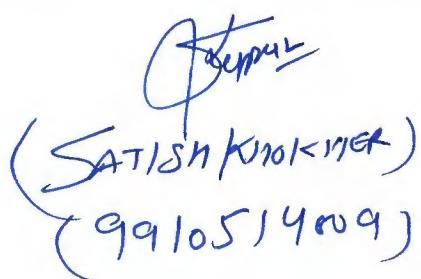 (SATISH KHOKHER)
(9910514809)